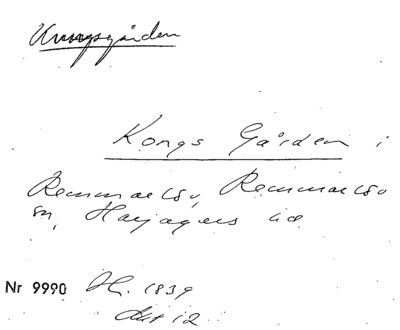 Kungsgården
Kongs Gården i
Remmarlöv, Remmarlöv
sn, Harjagers hd
Nr 9990 Fr. 1839
Akt 12